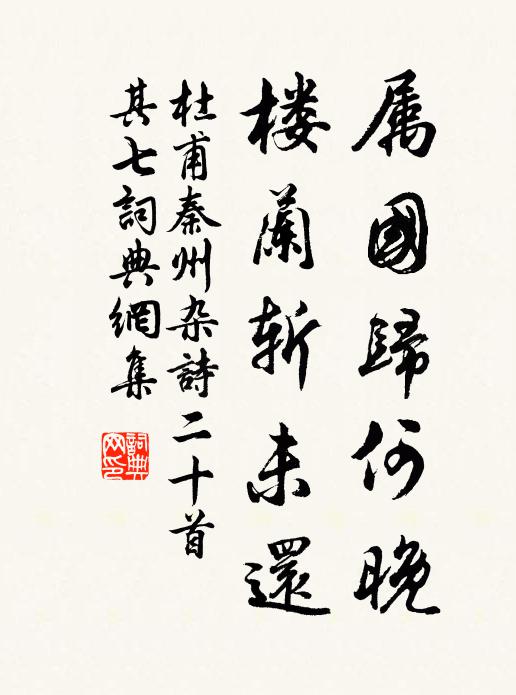 属國歸何晚
楼蘭斩未還
杜甫秦州杂詩二十首
其七詞典網集
詞典网印